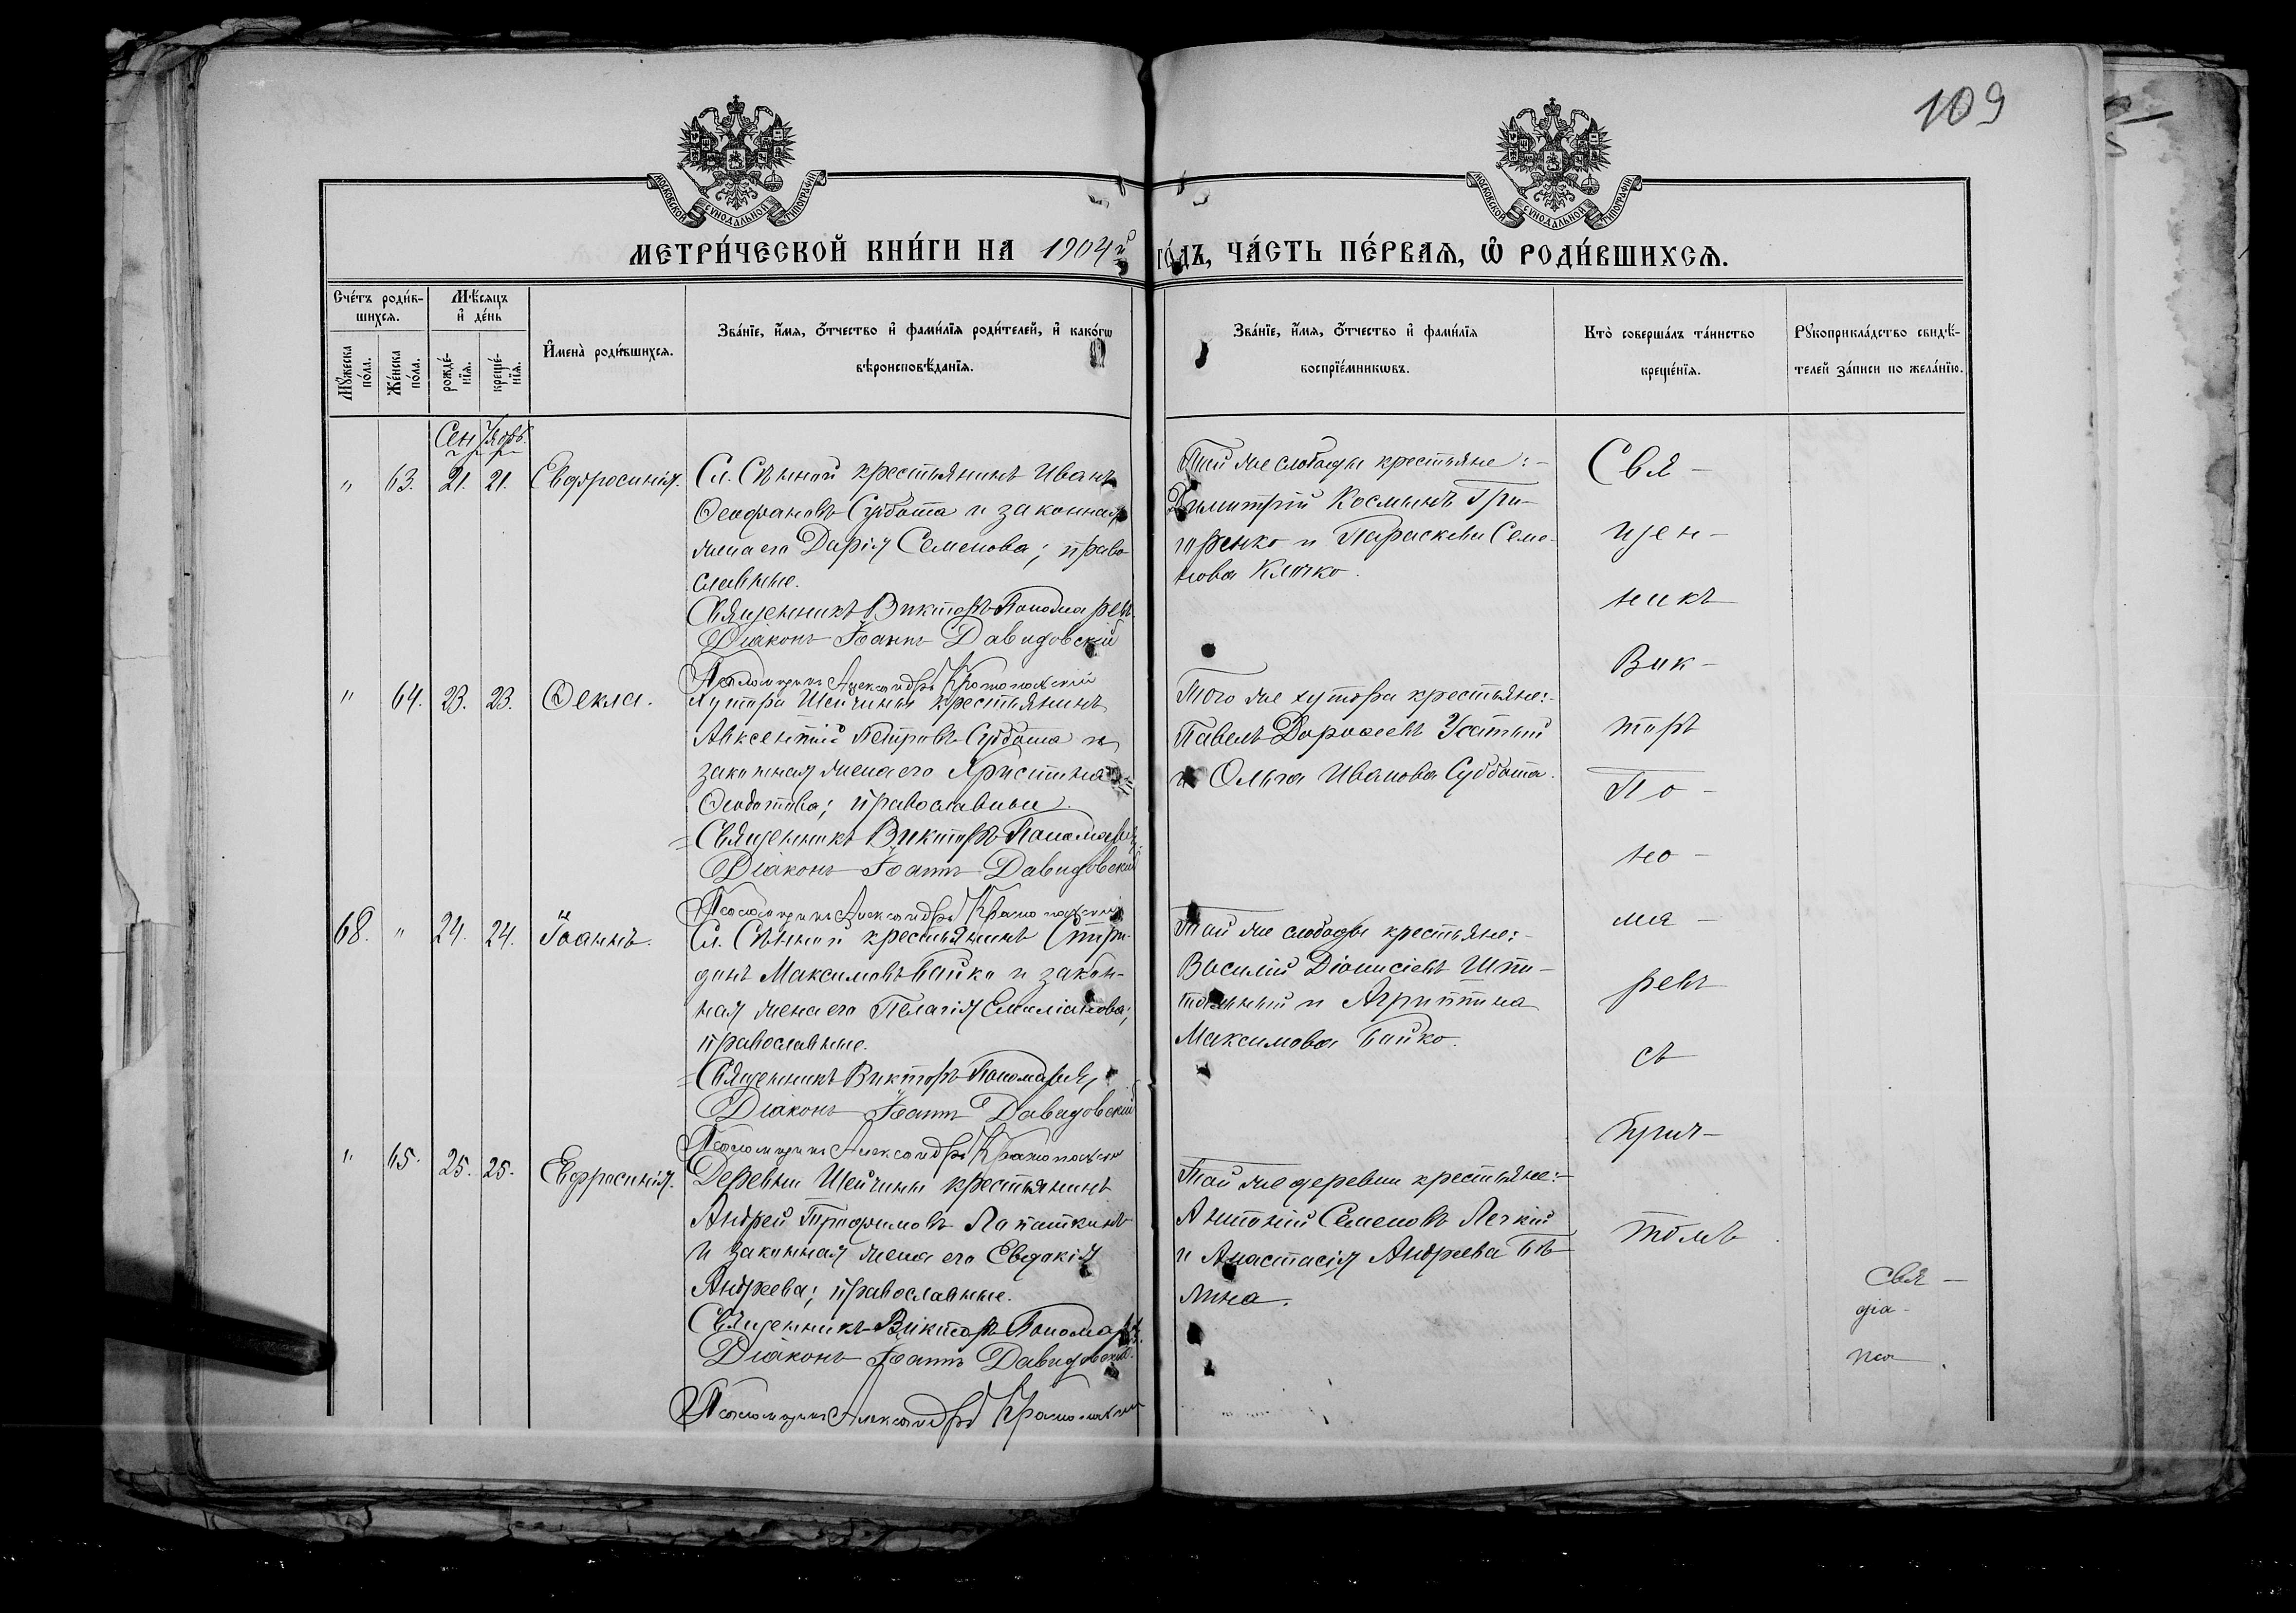 109
МОСКОВСКОЙ СѴНОДАЛЬНОЙ ТИПОГРАФІИ
МОСКОВСКОЙ СѴНОДАЛЬНОЙ ТИПОГРАФІИ
МЕТРИ́ЧЕСКОЙ КНИ́ГИ НА 1904й го́дъ, ЧА́СТЬ ПЕ́РВАѦ, Ѡ҆ РОДИ́ВШИХСѦ.
Сче́тъ роди́в-
шихсѧ.
Мꙋ́жеска по́ла.
Же́нска по́ла.
Мѣ́сѧцъ
и҆ де́нь
рожде́-
нїѧ.
креще́-
нїѧ.
И҆мена̀ роди́вшихсѧ.
Зва́нїе, и҆́мѧ, ѻ҆́тчество и҆ фами́лїѧ роди́телей, и҆ како́гѡ
вѣроисповѣ́данїѧ.
Зва́нїе, и҆́мѧ, ѻ҆́тчество и҆ фами́лїѧ
воспрїе́мникѡвъ.
Кто̀ соверша́лъ та́инство
креще́нїѧ.
Рꙋкоприкла́дство свидѣ́-
телей за́писи по жела́нїю.
Сентябрь.
" 63. 21. 21. Евфросинія.
Сл. Сѣнной крестьянинъ Иванъ
Ѳеофановъ Субота и законная
жена его Дарія Семенова; право-
славные.
Священникъ Викторъ Пономаревъ
Діаконъ Іоаннъ Давидовскій
Псаломщикъ Александръ
Той же слободы крестьяне:-
Димитрій Косминъ Гри-
горенко и Параскева Семе-
нова Клочко.
" 64. 23. 23. Ѳекла.
Хутора Шейчины крестьянинъ
Авксентій Петровъ Субота и
законная жена его Христина
Ѳеодотова; православные.
Священникъ Викторъ Пономаревъ
Діаконъ Іоаннъ Давидовскій
Псаломщикъ Александръ
Того же хутора крестьяне:-
Павелъ Дороѳеевъ Усатый
и Ольга Иванова Суббота.
68. " 24. 24. Іоаннъ.
Сл. Сѣнной крестьянинъ Спири-
донъ Максимовъ Байко и закон-
ная жена его Пелагія Емиліанова;
православные.
Священникъ Викторъ Пономаревъ
Діаконъ Іоаннъ Давидовскій
Псаломщикъ Александръ
Той же слободы крестьяне:-
Василій Діонисіевъ
и Агриппина
Максимова Байко.
" 65. 25. 25. Евфросинія.
Деревни Шейчины крестьянинъ
Андрей Трофимовъ Лапашкинъ
и законная жена его Евдокія
Андреева; православные.
Священникъ Викторъ Пономаревъ
Діаконъ Іоаннъ Давидовскій
Псаломщикъ Александръ
Той же деревни крестьяне:-
Антоній Семеновъ Легкій
и Анастасія Андреева Бѣ-
лина.
Свя-
щен-
никъ
Вик-
торъ
По-
но-
ма-
ревъ
съ
прич-
томъ